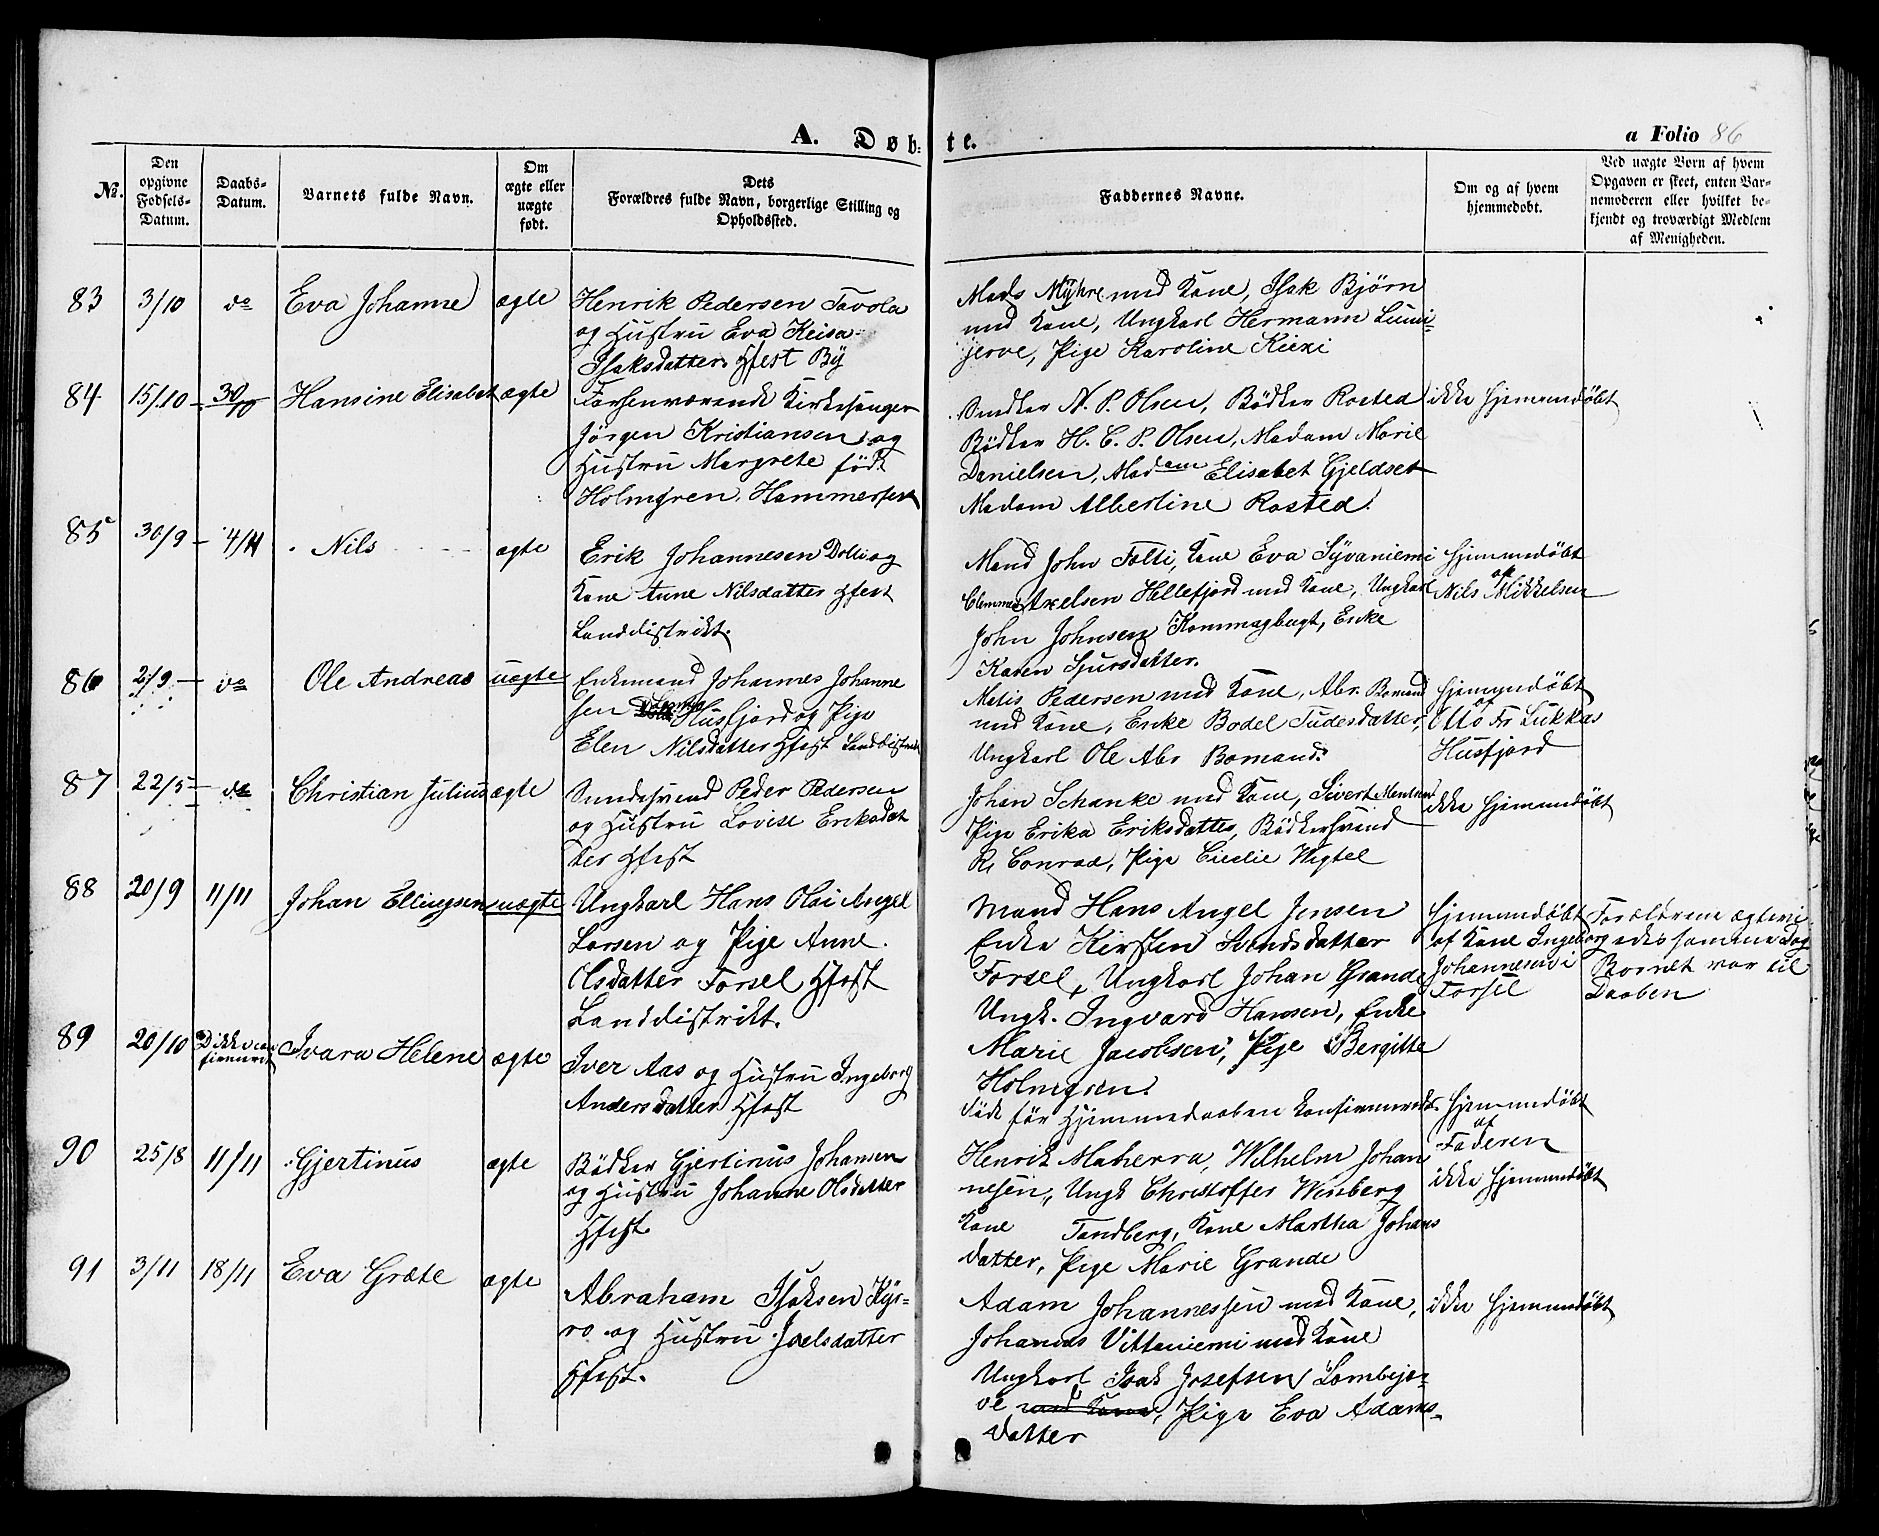 A. Døb-
te.
a Folio 86
No.
Den opgivne Fødsels-Datum.
Daabs-Datum.
Barnets fulde Navn.
Om ægte eller uægte født.
Dets Forældres fulde Navn, borgerlige Stilling og Opholdssted.
Faddernes Navne.
Om og af hvem hjemmedøbt.
Ved uægte Børn af hvem Opgaven er skeet, enten Barnemoderen eller hvilket bekjendt og troværdigt Medlem af Menigheden.
83 3/10 do Eva Johanne ægte
Henrik Pedersen Tavola
og Hustru Eva Keisa
Isaksdatter Hfest By
Mads Myhre med Kone, Isak Bjørn
med Kone, Ungkarl Hermann Lumi-
jerve, Pige Karoline Kieri
84 15/10 30/10 Hansine Elisabet ægte
Forhenværende Kirkesanger
Jørgen Kristiansen og
Hustru Margrete født
Holmgren, Hammerfest
Snedker N. P. Olsen, Bødker Rosted
Bødker H. C. P. Olsen, Madam Marie
Danielsen, Madam Elisabet Gjeldset
Madam Albertine Rosted.
ikke hjemmedøbt
85 30/9 4/11 Nils ægte
Erik Johannesen Dolli og
Kone Anne Nilsdatter Hfest
Landdistrikt.
Mand John Folti, Kone Eva Syvaniemi
Clemmet Axelsen Hellefjord med Kone, Ungkarl
John Johnsen Kommagbugt, Enke
Karen Sjursdatter.
hjemmedøbt
af
Nils Mikkelsen
86 2/9 do Ole Andreas uægte
Enkemand Johannes Johanne
sen Husfjord og Pige
Elen Nilsdatter Hfest Landdistrikt
Matis Pedersen med Kone, Abr. Bomand
med Kone, Enke Bodel Tudesdatter,
Ungkarl Ole Abr Bomand.
hjemmedøbt
af
Otto Fr Lukkas
Husfjord
87 22/5 do Christian Julius ægte
Smedesvend Peder Pedersen
og Hustru Lovise Eriksdat
ter Hfest
Johan Schanke med Kone, Sivert
Pige Erika Eriksdatter, Bødkersvend
R. Conrad, Pige Cicilie Wigtel
ikke hjemmedøbt
88 20/9 11/11 Johan Ellingsen uægte
Ungkarl Hans Olai Angel
Larsen og Pige Anne
Olsdatter Forsøl Hfest
Landdistrikt.
Mand Hans Angel Jensen
Enke Kirsten Svendsdatter
Forsøl, Ungkarl Johan Grande
Ungk. Ingvard Hansen, Enke
Marie Jacobsen, Pige Bergitte
Holmgren.
hjemmedøbt
af Kone Ingeborg
Johannesen i
Forsøl
Forældrene ægtevi
edes samme Dag
Barnet var til
Daaben
89 20/10 Død ikke con
firmeret Ivara Helene ægte
Iver Aas og Hustru Ingeborg
Andersdatter Hfest
Død før Hjemmedaaben konfirmeredes.
hjemmedøbt
af
Faderen
90 25/8 11/11 Gjertinus ægte
Bødker Gjertinus Johansen
og Hustru Johanne Olsdatter
Hfest.
Henrik Maherra, Wilhelm Johan
nesen, Ungk Christoffer Winberg
Kone Tandberg, Kone Martha Johans
datter, Pige Marie Grande
ikke hjemmedøbt
91 3/11 18/11 Eva Grete ægte
Abraham Isaksen Kyr-
ro og Hustru Joelsdatter
Hfest.
Adam Johannessen med Kone,
Johannes Vittaniemi med Kone
Ungkarl Isak Josefsen Lombijer-
ve med Kone, Pige Eva Adams-
datter
ikke hjemmedøbt